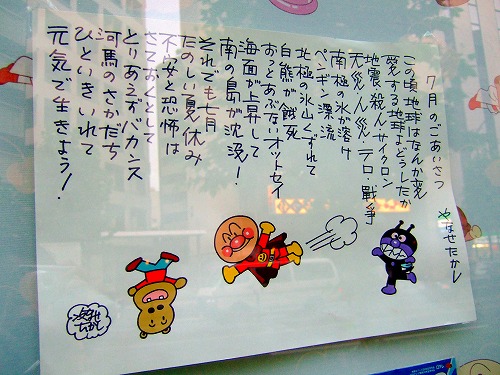 7月のごあいさつ
やなせたかし
この頃地球はなんか変
愛する地球よどうしたか
地震・殺人・サイクロン
天災・人災・テロ・戦争
南極の氷が溶け
ペンギン漂流
北極の氷山くずれて
白熊が餓死
おっとあぶないオットセイ
海面が上昇して
南の島が沈没!
それでも七月
たのしい夏休み
不安と恐怖は
さておくとして
とりあえずバカンス
河馬のさかだち
ひといきいれて
元気で生きよう!
やなせたかし